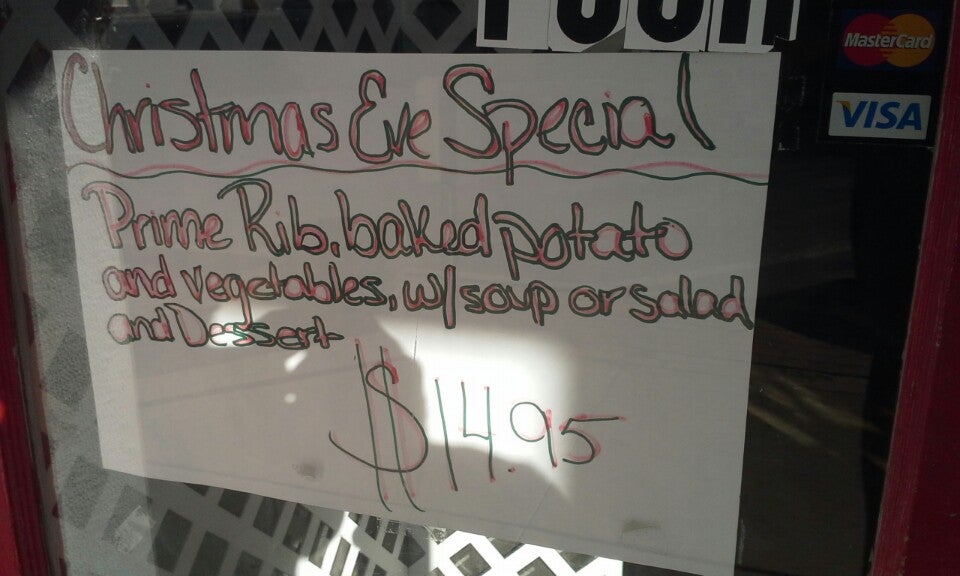 MasterCard
VISA
Christmas Eve Special
Prime Rib, baked potato
and vegetables, w/ soup or salad
and Dessert
$14.95